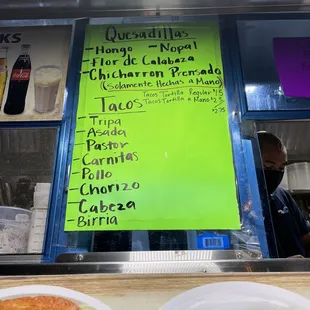 KS
Quesadillas
- Hongo - Nopal
- Flor de Calabaza
- Chicharron Prensado
(Solamente Hechas a Mano)
Tacos
Tacos Tortilla Regular
Tacos Tortilla a Mano
- Tripa
- Asada
- Pastor
- Carnitas
- Pollo
- Chorizo
- Cabeza
- Birria